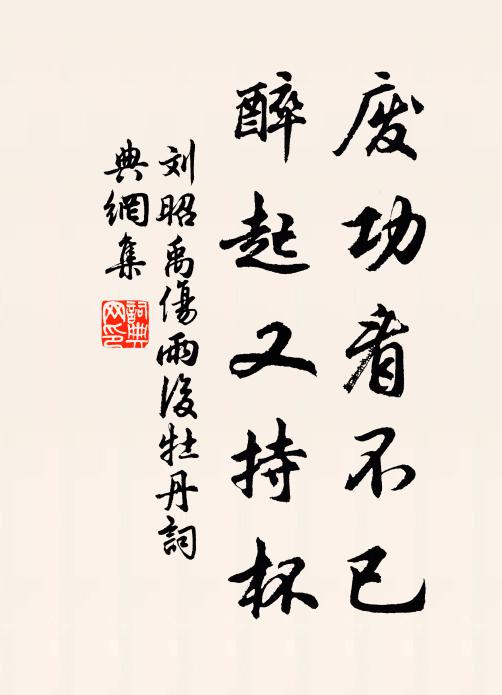 废功看不已
醉起又持杯
刘昭禹傷雨後牡丹詞
典網集
詞典
网印